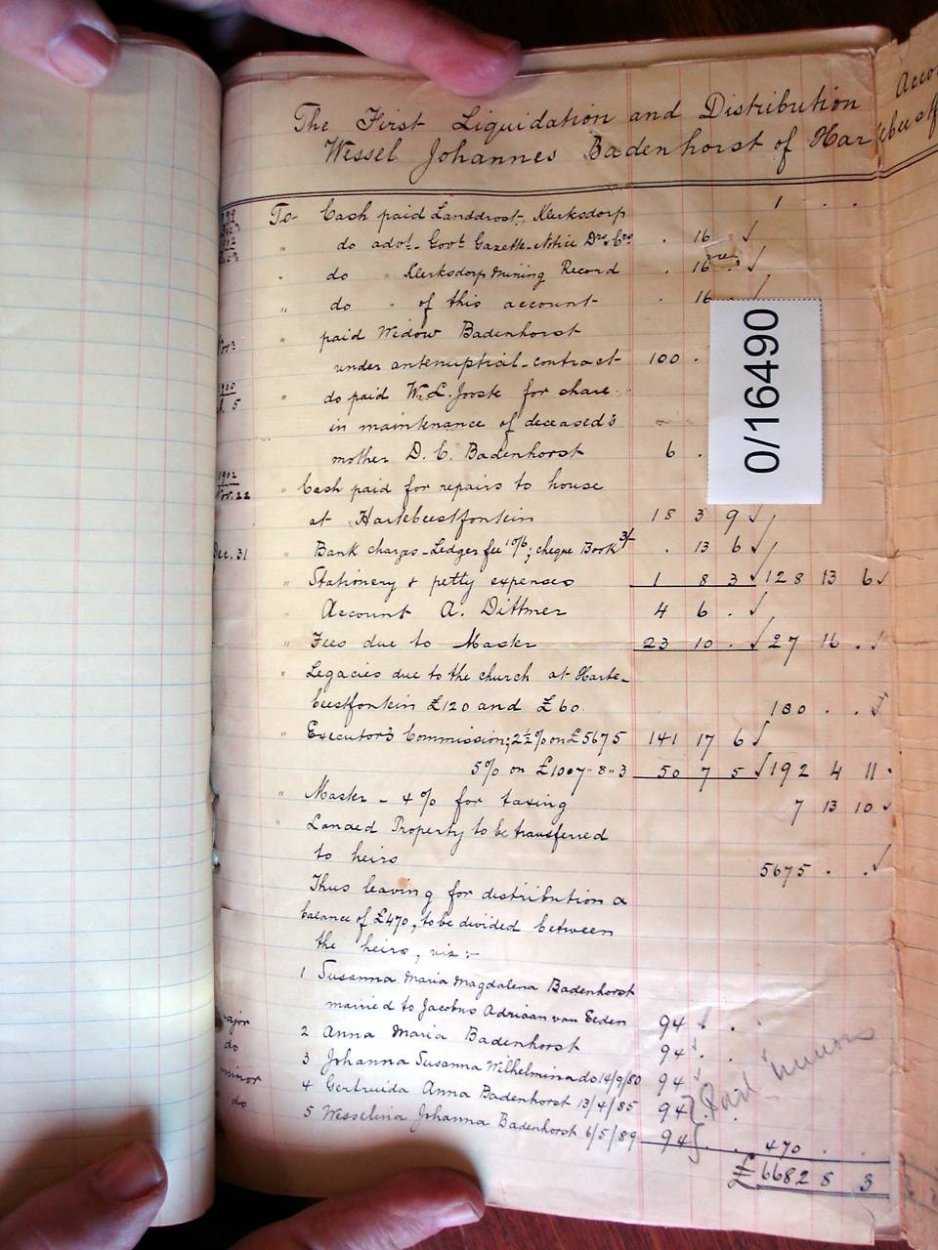 The First Liquidation and Distribution Acco
Wessel Johannes Badenhorst of Hartebeestf
To Cash paid Landdrost, Klerksdorp 1 . .
" do advt. Govt Gazette-Notice Drs & Crs . 16 . ✓
" do " Klerksdorp Mining Record . 16 . ✓
" do " of this account . 16
" paid Widow Badenhorst
under antenuptial-contract 100 .
" do paid W. L. Jooste for share
in maintenance of deceased's
mother D. C. Badenhorst 6 .
0/16490
1902
Nov. 22 " Cash paid for repairs to house
at Hartebeestfontein 18 3 9 ✓
Dec. 31 " Bank charges-Ledger fee 10/6; cheque Book 3/- . 13 6 ✓
" Stationery & petty expenses 1 8 3 ✓ 128 13 6 ✓
" Account A. Dittmer 4 6 . ✓
" Fees due to Master 23 10 . ✓ 27 16 . ✓
" Legacies due to the church at Harte-
beestfontein £120 and £60. 180 . . ✓
" Executor's Commission; 2½% on £5675 141 17 6 ✓
5% on £1007-8-3 50 7 5 ✓ 192 4 11 .
" Master - 4% for taxing 7 13 10 ✓
" Landed Property to be transferred
to heirs 5675 . . ✓
Thus leaving for distribution a
balance of £470, to be divided between
the heirs, viz:-
1 Susanna Maria Magdalena Badenhorst
married to Jacobus Adriaan van Eeden 94 . .
major 2 Anna Maria Badenhorst 94 . .
do 3 Johanna Susanna Wilhelmina do 14/9/80 94
minor 4 Gertruida Anna Badenhorst 13/4/85 94
do 5 Wesselina Johanna Badenhorst 6/5/89 94 . . 470 . .
£ 6682 8 3